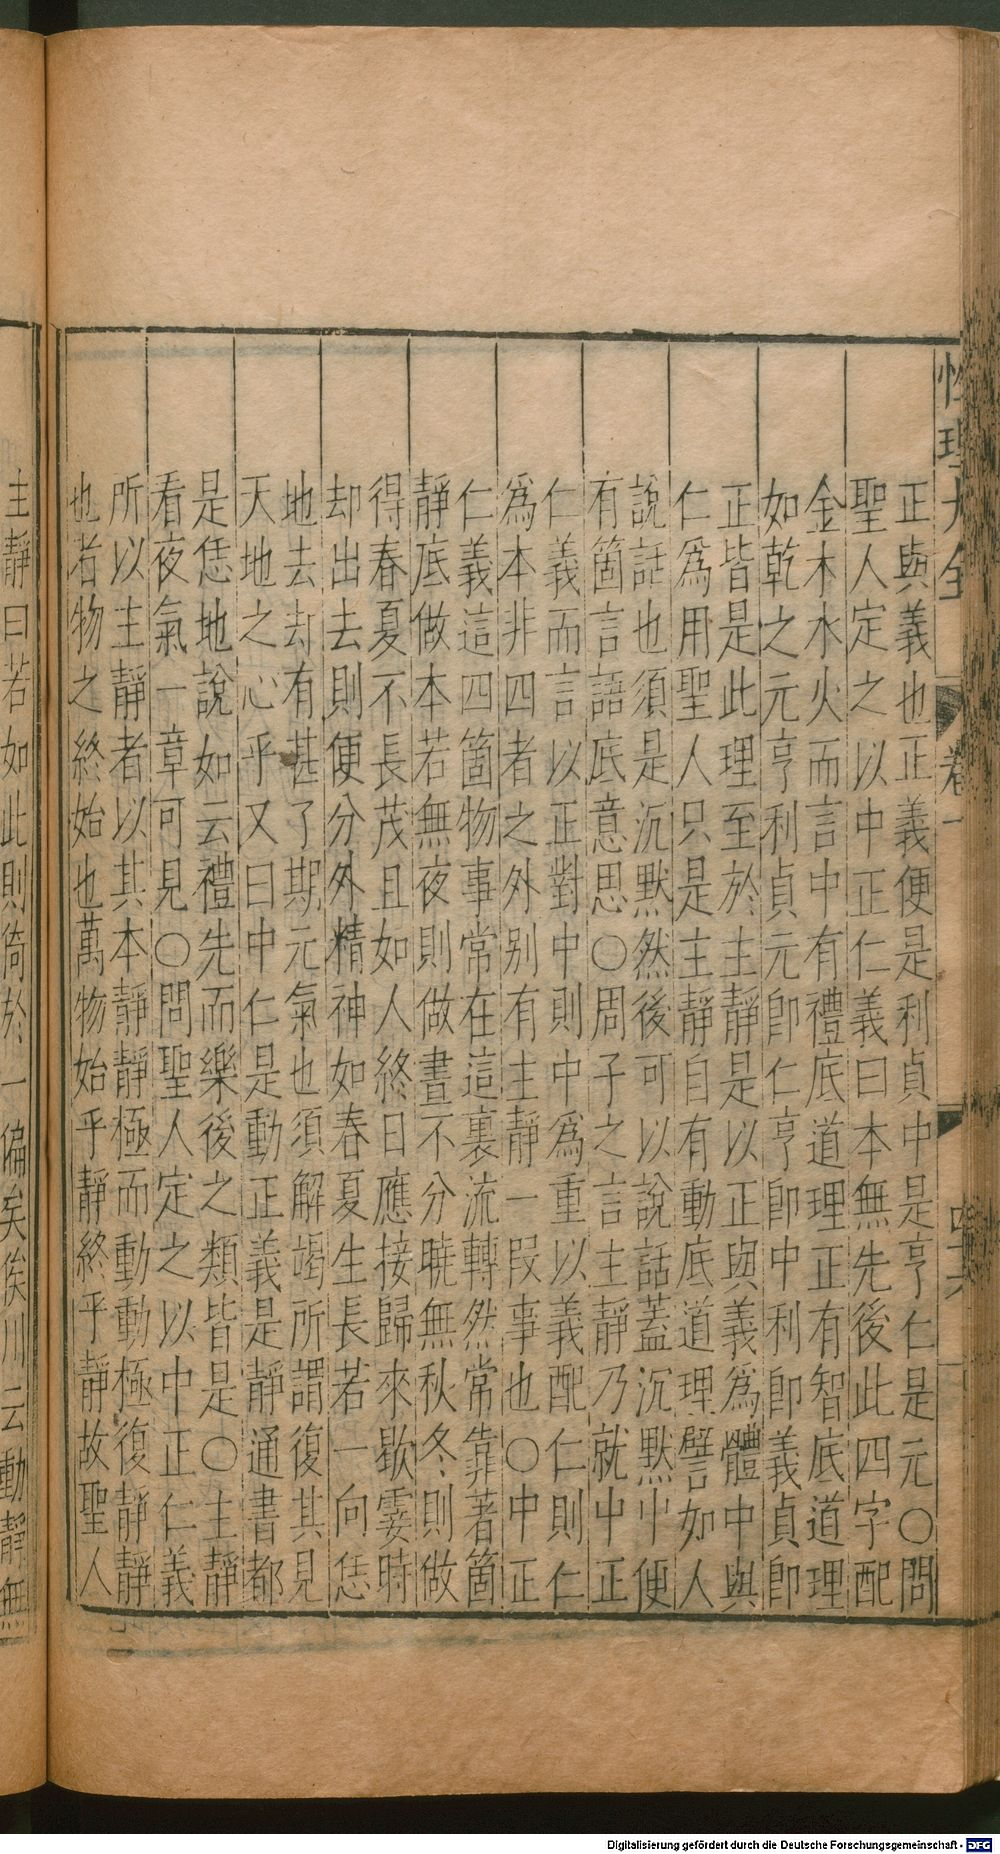 性理大全
卷一
正與義也正義便是利貞中是亨仁是元〇問
聖人定之以中正仁義曰本無先後此四字配
金木水火而言中有禮底道理正有智底道理
如乾之元亨利貞元卽仁亨卽中利卽義貞卽
正皆是此理至於主靜是以正與義爲體中與
仁爲用聖人只是主靜自有動底道理譬如人
說話也須是沉默然後可以說話蓋沉默中便
有箇言語底意思〇周子之言主靜乃就中正
仁義而言以正對中則中爲重以義配仁則仁
爲本非四者之外别有主靜一段事也〇中正
仁義這四箇物事常在這裏流轉然常靠著箇
靜底做本若無夜則做晝不分曉無秋冬則做
得春夏不長茂且如人終日應接歸來歇霎時
却出去則便分外精神如春夏生長若一向恁
地去却有甚了期元氣也須解竭所謂復其見
天地之心乎又曰中仁是動正義是靜通書都
是恁地說如云禮先而樂後之類皆是〇主靜
看夜氣一章可見〇問聖人定之以中正仁義
所以主靜者以其本靜靜極而動動極復靜靜
也者物之終始也萬物始乎靜終乎靜故聖人
主靜曰若如此則倚於一偏矣矦川云動靜無
Digitalisierung gefördert durch die Deutsche Forschungsgemeinschaft - DFG